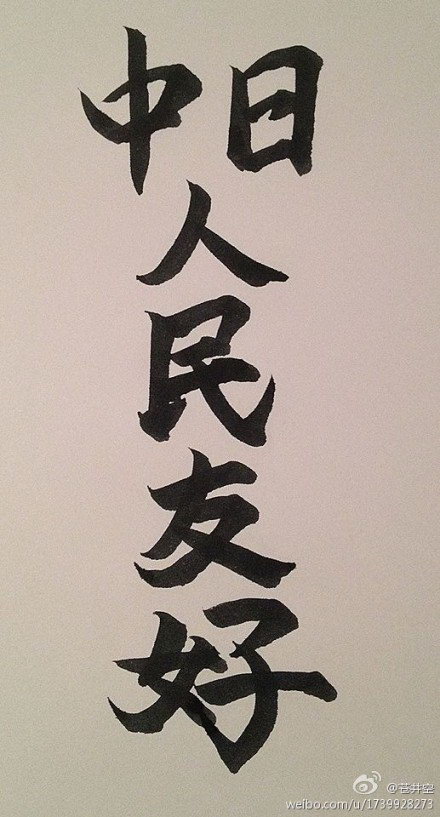 中日
人
民
友
好
@苍井空
weibo.com/u/1739928273